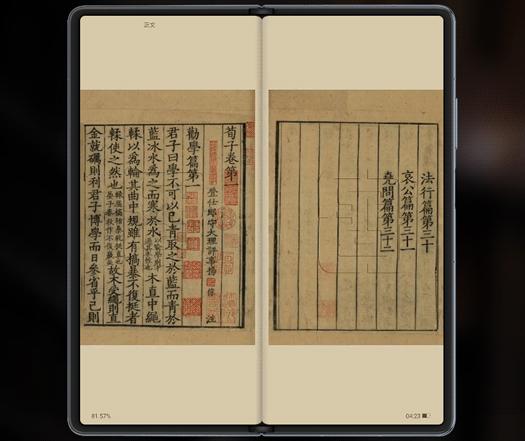 正文
荀子卷第一
登仕郎守大理評事楊 倞 注
勸學篇第一
君子曰學不可以已青取之於藍而青於
藍冰水為之而寒於水 木直中繩
輮以為輪其曲中規雖有槁暴不復挺者
輮使之然也 故木受繩則直
金就礪則利君子博學而日參省乎己則
法行篇第三十
哀公篇第三十一
堯問篇第三十二
81.57%
04:23